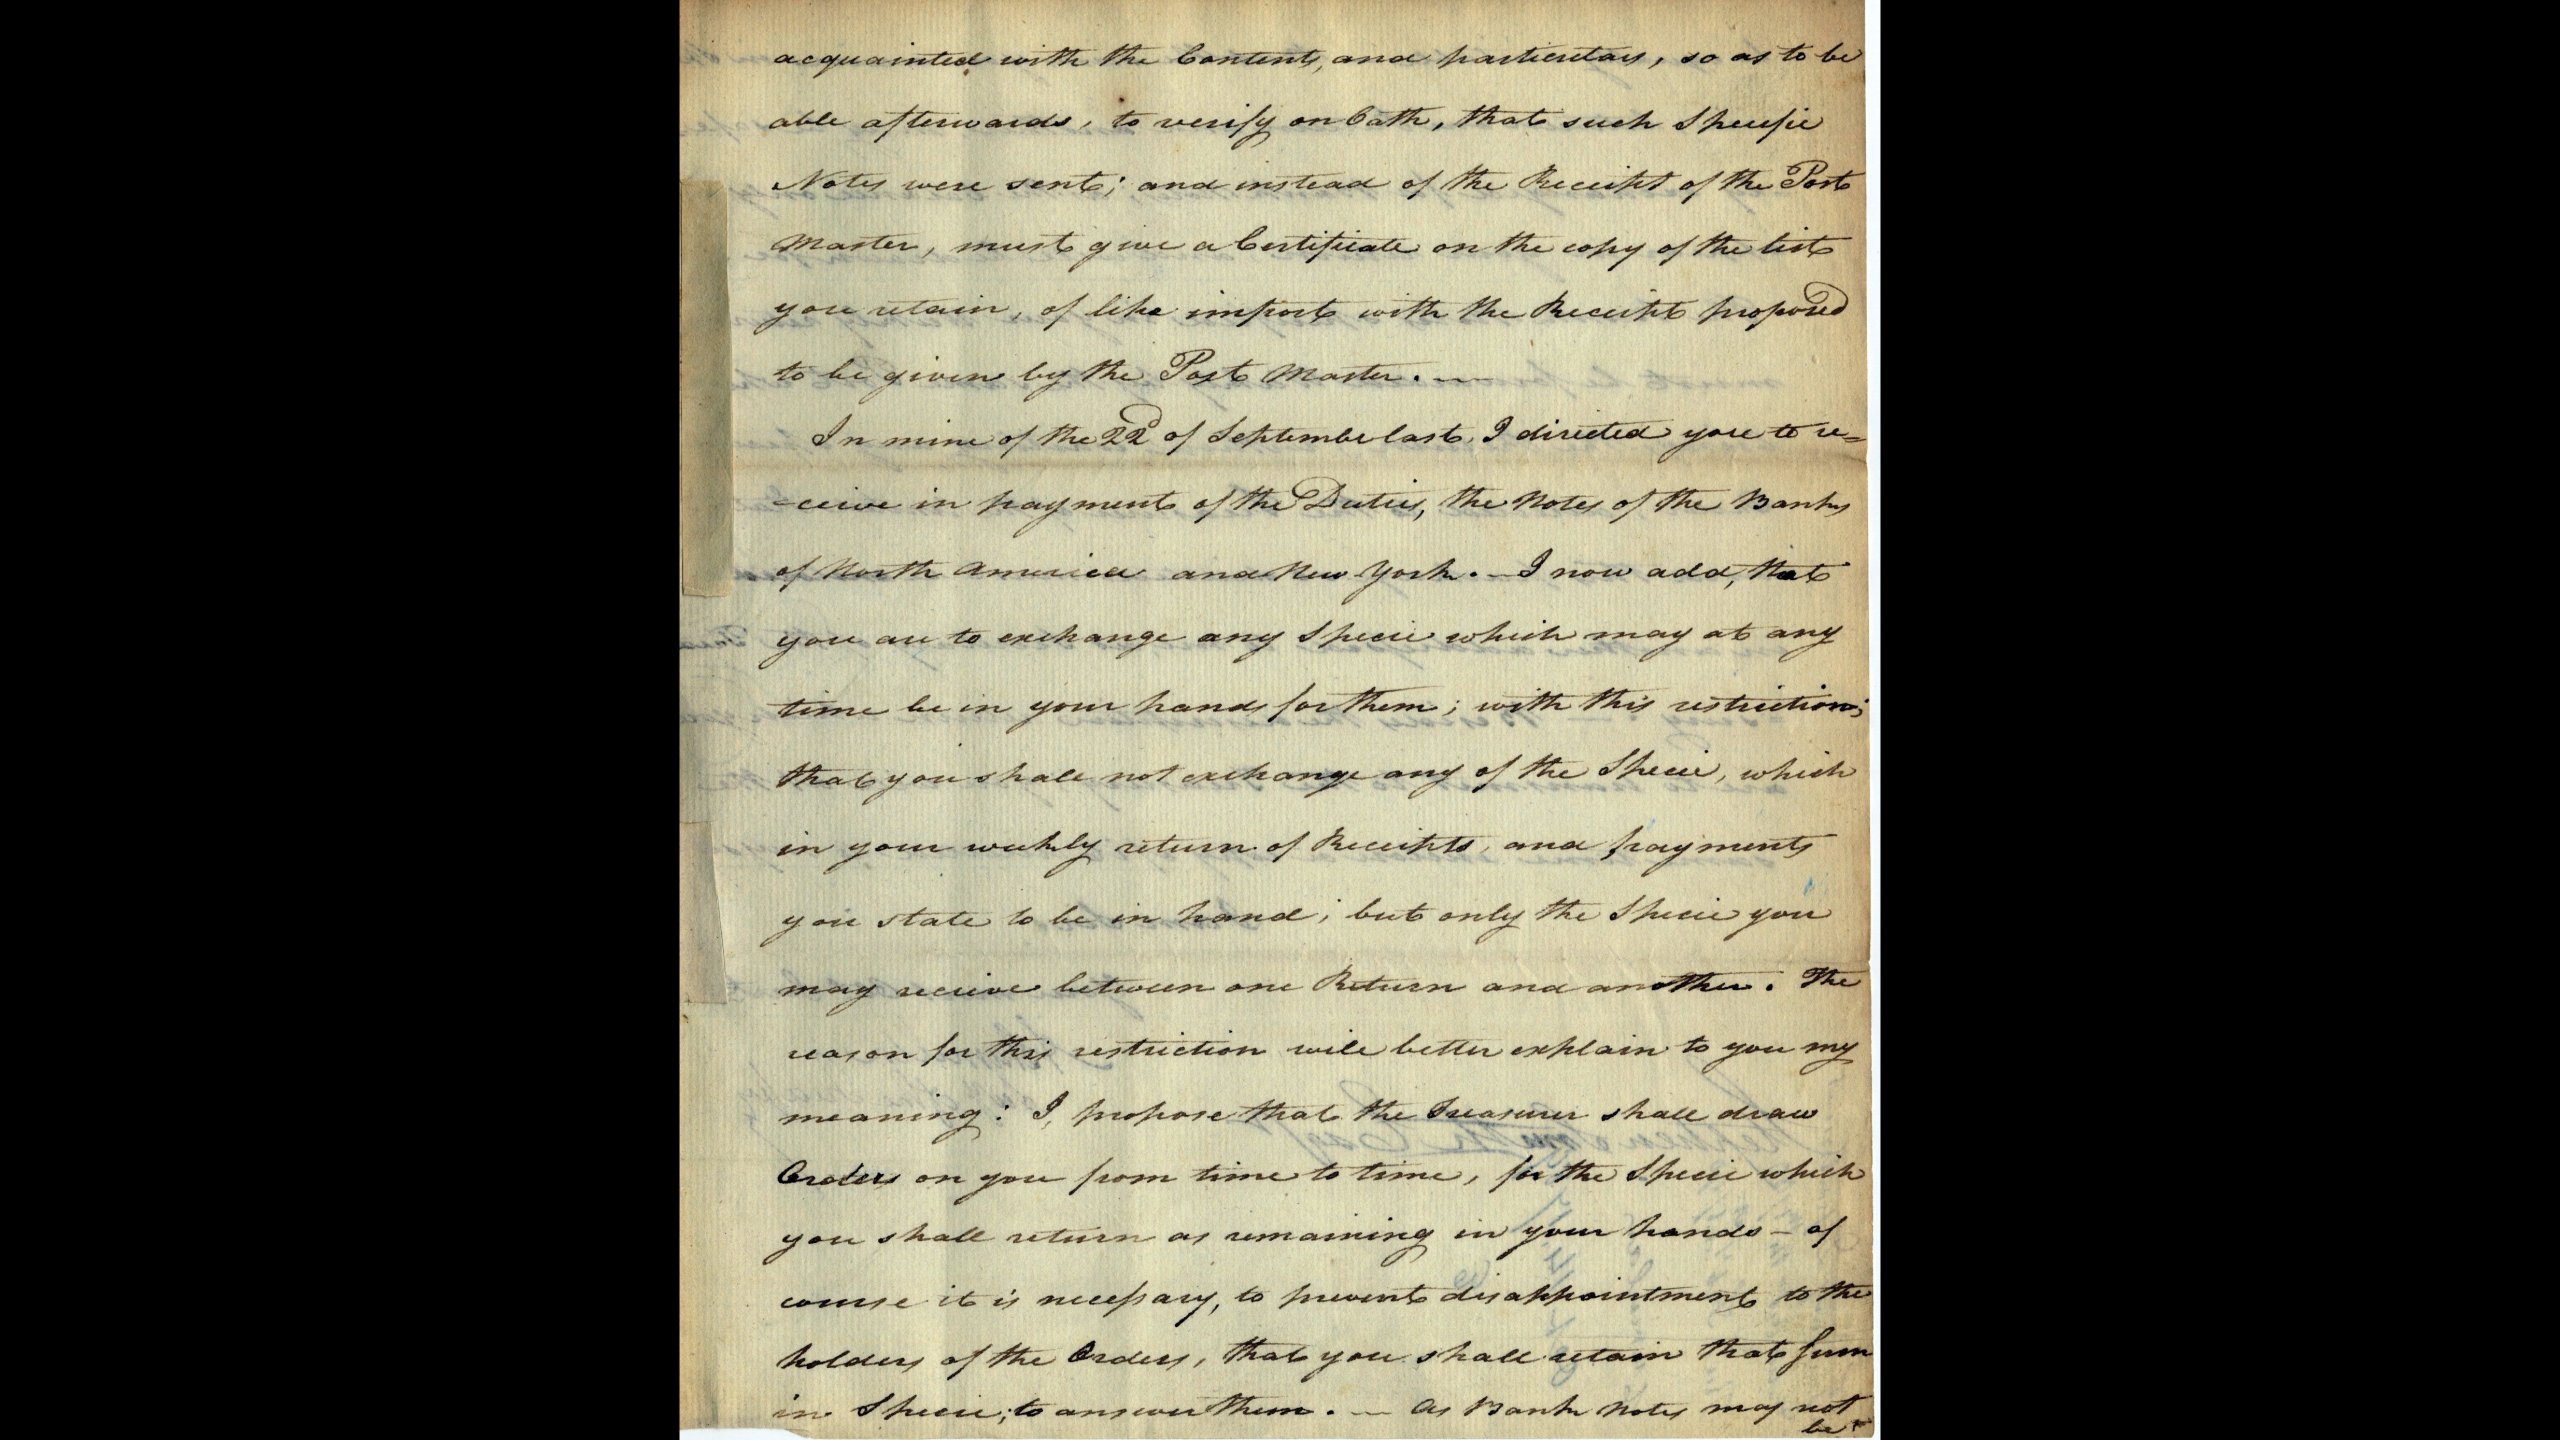 acquainted with the Contents, and particulars, so as to be
able afterwards, to verify on Oath, that such Specific
Notes were sent; and instead of the Receipt of the Post
Master, must give a Certificate on the copy of the list
you retain, of like import with the Receipt proposed
to be given by the Post Master. —
In mine of the 22d of Septembe last, I directed you to re=
-ceive in payment of the Duties, the Notes of the Banks
of North America and New York. — I now add, that
you are to exchange any Specie which may at any
time be in your hands for them; with this restriction;
that you shall not exchange any of the Specie, which
in your weekly return of Receipts, and payments
you state to be in hand; but only the Specie you
may receive between one Return and another. The
reason for this restriction will better explain to you my
meaning: I, propose that the Treasurer shall draw
Orders on you from time to time, for the Specie which
you shall return as remaining in your hands — of
course it is necessary, to prevent disappointment to the
holders of the Orders, that you shall retain that Sum
in Specie; to answer them. — As Bank Notes may not
be